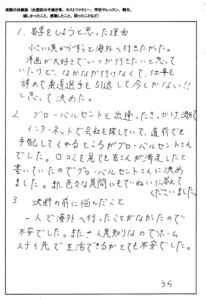 実際の体験談（出国前の手続き等、ホストファミリー、学校やレッスン、観光、
嬉しかったこと、感動したこと、困ったことなど）
1. 留学をしようと思った理由
小さい頃からずっと海外へ行きたかった。
漫画が大好きでいつか行きたいと思って
いたけど、なかなか行けなくて、仕事を
辞めて柔道選手を引退して今しかない!!
と思って決めた。
2. グローバルセントとの出会い、きっかけ、決め手
インターネットで会社を探していて、直前でも
手配してくれるところがグローバルセントさん
でした。口コミを見ても皆さんが満足したと
書いていたのでグローバルセントさんに決め
ました。また色々な質問にもていねいに答えて
くださいました。
3. 決断の前に悩んだこと
一人で海外へ行ったことがなかったので
不安でした。また一人見知りなのでホーム
ステイ先で生活できるかとても不安でした。
うら